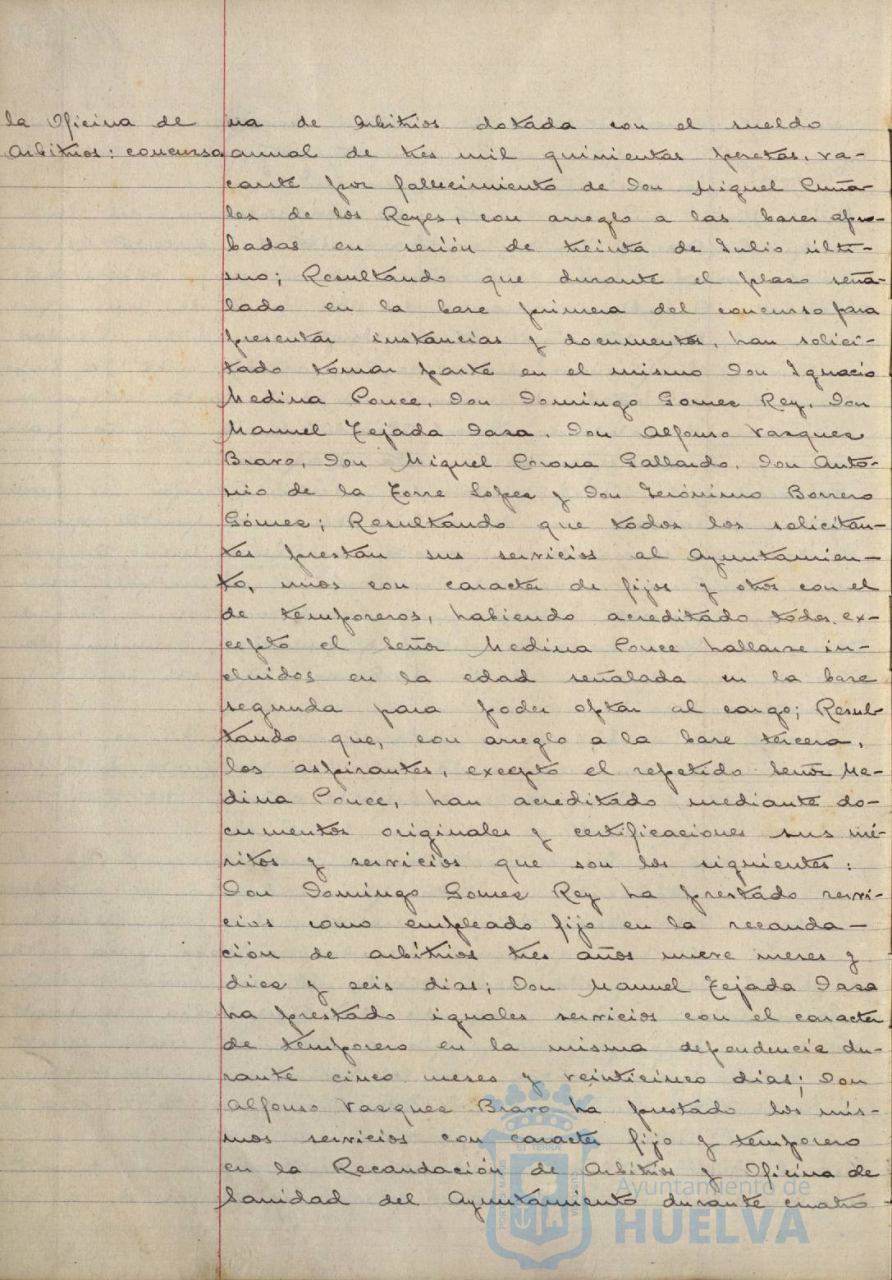 la Oficina de
Arbitrios: concurso
na de Arbitrios dotada con el sueldo
anual de tres mil quinientas pesetas, va-
cante por fallecimiento de Don Miguel
lez de los Reyes, con arreglo a las bases apro-
badas en sesión de treinta de Julio últi-
mo; Resultando que durante el plazo seña-
lado en la base primera del concurso para
presentar instancias y documentos, han solici-
tado tomar parte en el mismo Don Ignacio
Medina Ponce, Don Domingo Gomez Rey, Don
Manuel Tejada Daza, Don Alfonso Vazquez
Bravo, Don Miguel Corona Gallardo, Don Anto-
nio de la Torre Lopez y Don Jerónimo Borrero
Gómez; Resultando que todos los solicitan-
tes prestan sus servicios al Ayuntamien-
to, unos con caracter de fijos y otros con el
de temporeros, habiendo acreditado todos, ex-
cepto el Señor Medina Ponce hallarse in-
cluidos en la edad señalada en la base
segunda para poder optar al cargo; Resul-
tando que, con arreglo a la base tercera,
los aspirantes, excepto el repetido Señor Me-
dina Ponce, han acreditado mediante do-
cumentos originales y certificaciones sus mé-
ritos y servicios que son los siguientes:
Don Domingo Gomez Rey ha prestado servi-
cios como empleado fijo en la recauda-
ción de arbitrios tres años nueve meses y
diez y seis dias; Don Manuel Tejada Daza
ha prestado iguales servicios con el caracter
de temporero en la misma dependencia du-
rante cinco meses y veinticinco dias; Don
Alfonso Vazquez Bravo ha prestado los mis-
mos servicios con caracter fijo y temporero
en la Recaudación de Arbitrios y Oficina de
Sanidad del Ayuntamiento durante cuatro
Ayuntamiento de
HUELVA